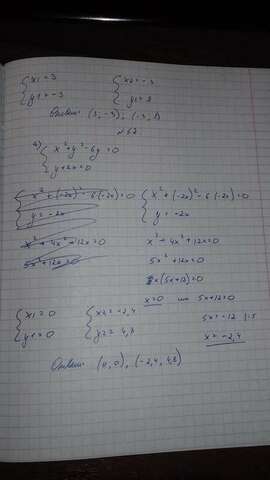 { x1 = 3 { x2 = -3
{ y1 = -3 { y2 = 3
Ответ: (3, -3); (-3, 3)
№ 62
а) { x² + y² - 6y = 0
{ y + 2x = 0
{ x² + (-2x)² - 6(-2x) = 0 { x² + (-2x)² - 6(-2x) = 0
{ y = -2x { y = -2x
x² + 4x² + 12x = 0 x² + 4x² + 12x = 0
5x² + 12x = 0 5x² + 12x = 0
x(5x + 12) = 0
x = 0 или 5x + 12 = 0
{ x1 = 0 { x2 = -2,4 5x = -12 |:5
{ y1 = 0 { y2 = 4,8 x = -2,4
Ответ: (0, 0), (-2,4, 4,8)